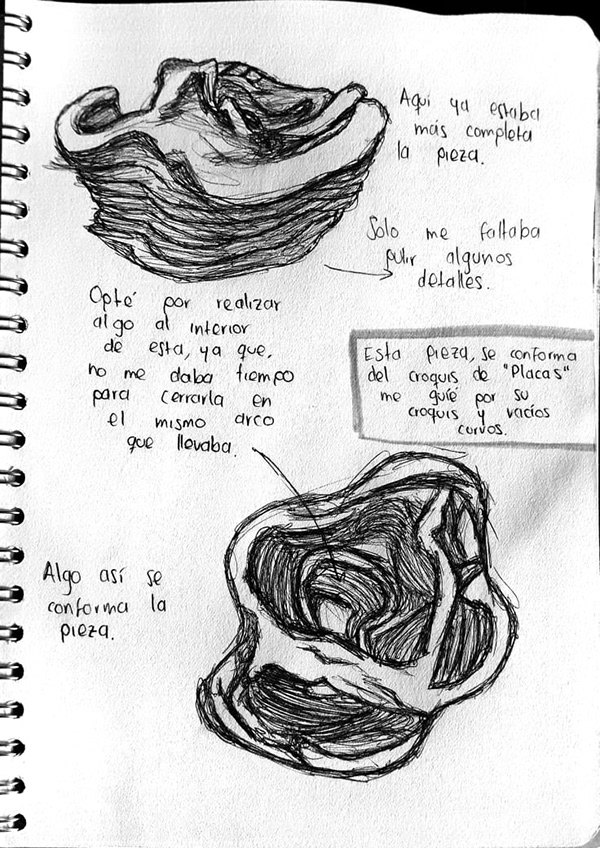 Aquí ya estaba
más completa
la pieza.
Solo me faltaba
pulir algunos
detalles.
Opté por realizar
algo al interior
de esta, ya que,
no me daba tiempo
para cerrarla en
el mismo arco
que llevaba.
Esta pieza, se conforma
del croquis de "Placas"
me guié por su
croquis y vacíos
curvos.
Algo así se
conforma la
pieza.